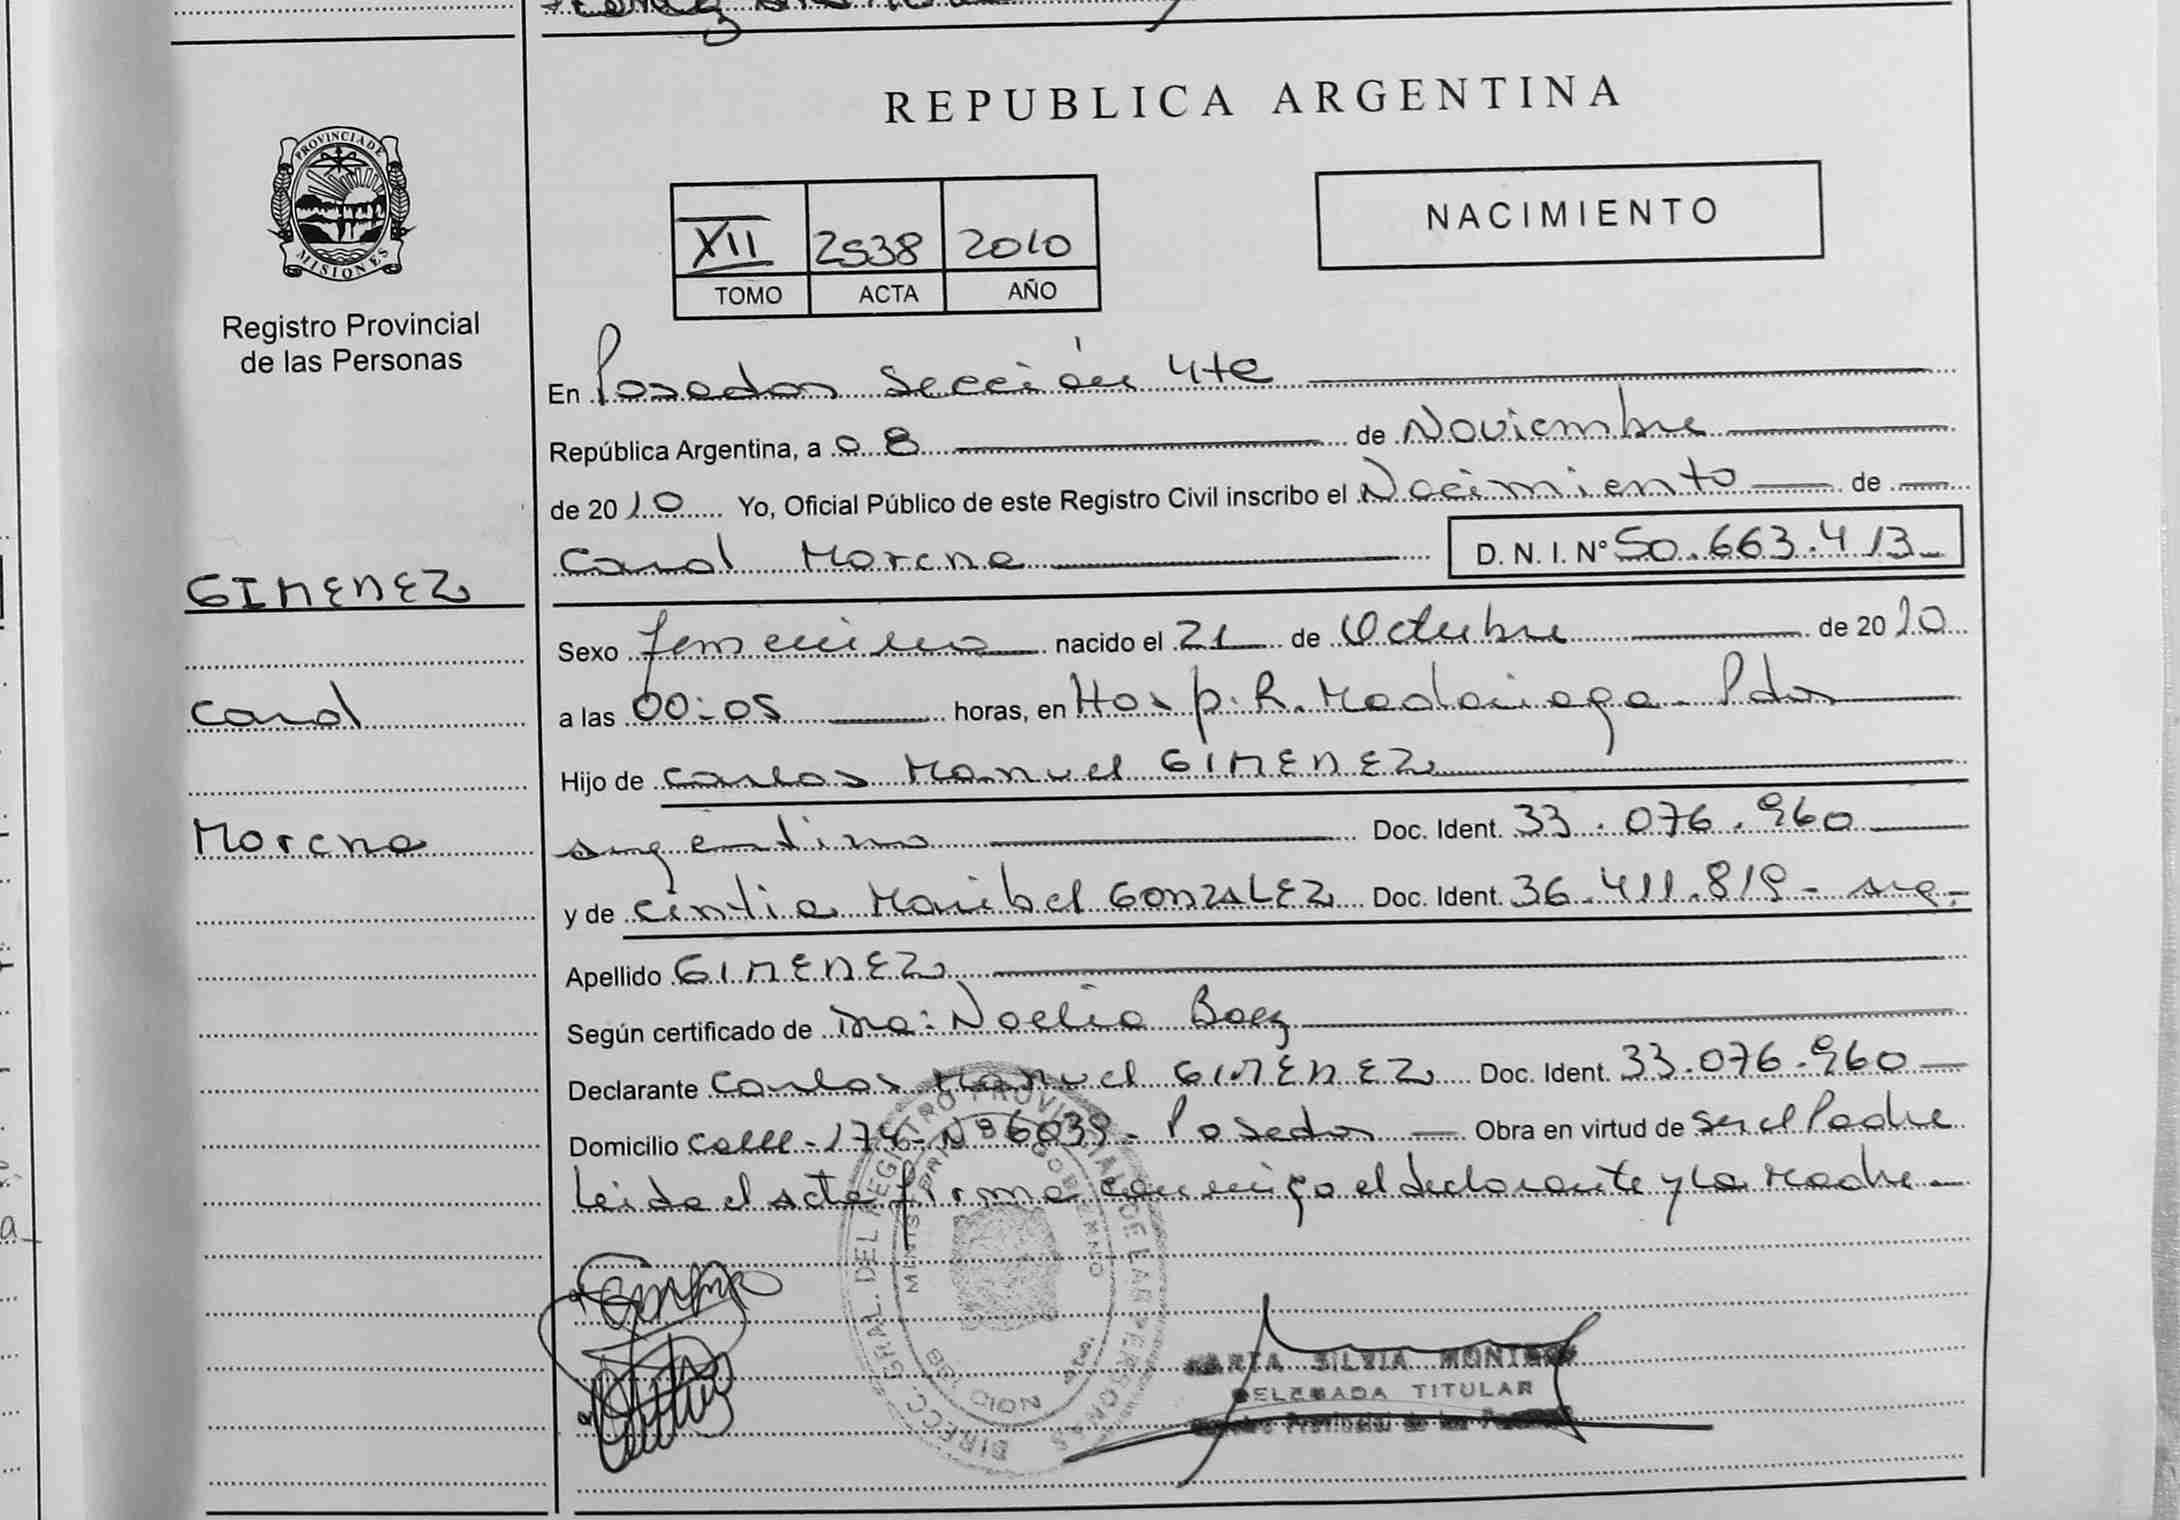 PROVINCIA DE
MISIONES
Registro Provincial
de las Personas
GIMENEZ
Carol
Morena
REPUBLICA ARGENTINA
XII 2538 2010
TOMO ACTA AÑO
NACIMIENTO
En Posadas Sección 4ta
República Argentina, a 08 de Noviembre
de 2010 Yo, Oficial Público de este Registro Civil inscribo el Nacimiento de
Carol Morena D. N. I. N° 50.663.413
Sexo femenino nacido el 21 de Octubre de 2010
a las 00:05 horas, en Hosp. R. Madariaga - Pdas
Hijo de Carlos Manuel GIMENEZ
argentino Doc. Ident. 33.076.960
y de Cintia Maribel GONZALEZ Doc. Ident. 36.411.819 - arg.
Apellido GIMENEZ
Según certificado de Dra: Noelia Baez
Declarante Carlos Manuel GIMENEZ Doc. Ident. 33.076.960
Domicilio Calle - 174 - Nº 6039 - Posadas Obra en virtud de ser el Padre
Leida el acta firma conmigo el declarante y la Madre
DIRECC. GRAL. DEL REGISTRO PROVINCIAL DE LAS PERSONAS
MINISTERIO GOBIERNO
MARTA SILVIA
DELEGADA TITULAR
Registro Provincial de las Personas